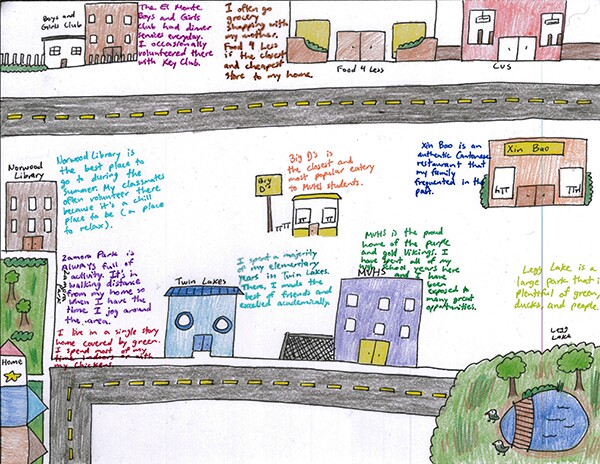 Boys and
Girls Club
The El Monte
Boys and Girls
Club had dinner
services everyday.
I occasionally
volunteered there
with Key Club.
I often go
grocery
shopping with
my mother.
Food 4 Less
is the closest
and cheapest
store to my home.
Food 4 Less
CVS
Norwood
Library
Norwood Library is
the best place to
go to during the
summer. My classmates
often volunteer there
because it's a chill
place to be (a place
to relax).
Big
D's
Big D's is
the closest and
most popular eatery
to MVHS students.
Xin Bao is an
authentic Cantonese
restaurant that
my family
frequented in the
past.
Xin Bao
Zamora Park
Zamora Park is
ALWAYS full of
activity. It's in
walking distance
from my home so
when I have the
time I jog around
the area.
I live in a single story
home covered by green.
I spend most of my
time indoors or with
my chickens.
Home
Twin Lakes
I spent a majority
of my elementary
years in Twin Lakes.
There, I made the
best of friends and
excelled academically.
MVHS
MVHS is the proud
home of the purple
and gold Vikings. I
have spent all of my
high school years here
and have
been
exposed to
many great
opportunities.
Legg Lake is a
large park that is
plentiful of green,
ducks, and people.
Legg
Lake